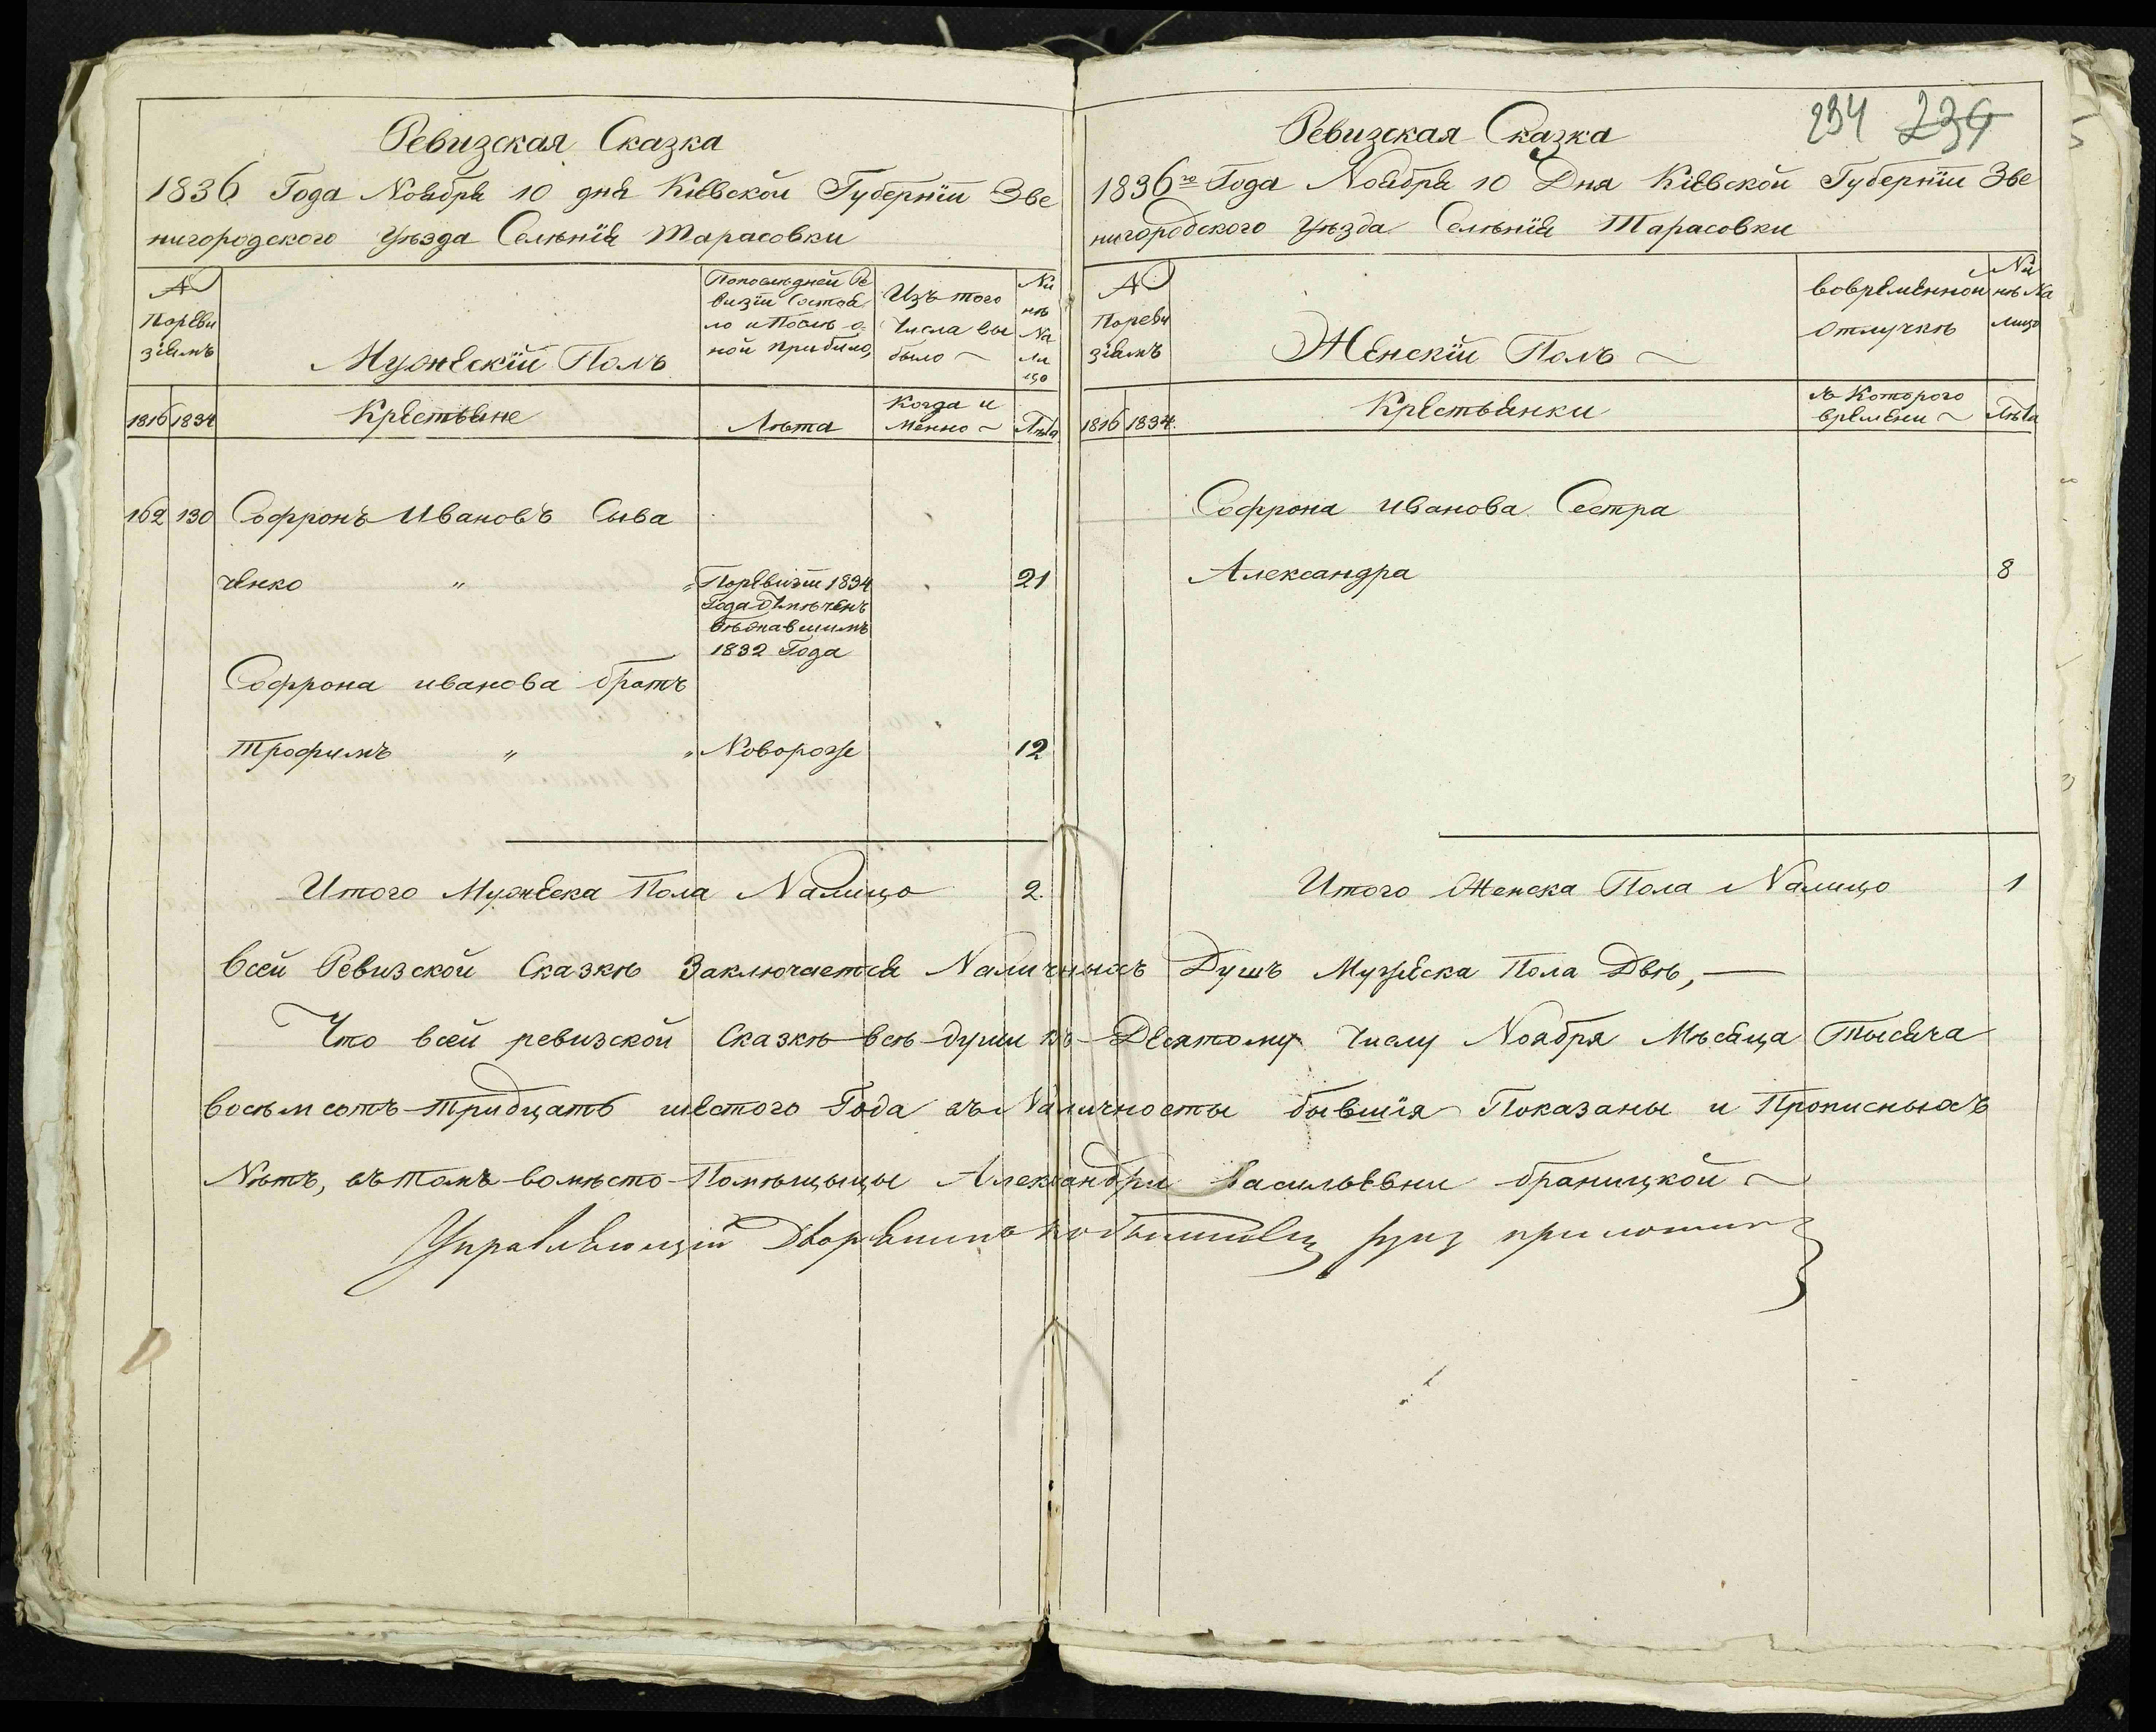 Ревизская Сказка
1836 Года Ноября 10 дня Кіевской Губерніи Зве
нигородского Уѣзда Селѣнія Тарасовки
№
Пореви
зіямъ
Мужескій Полъ
Попослѣдней Ре
визіи Состоя
ло и Послѣ о
ной прибыло
Изъ того
Числа вы
было ~
Ны
нѣ
На
ли
цо
1816 1834
Крестьяне
Лѣта
Когда и
менно ~
Лѣта
162 130 Софронъ Ивановъ Сыва
ченко " " Поревизіи 1834 21
Года
1832 Года
Софрона иванова братъ
Трофимъ " " Новорожде 12
Итого Мужеска Пола Налицо 2.
234 234
Ревизская Сказка
1836го Года Ноября 10 Дня Кіевской Губерніи Зве
нигородского Уѣзда Селѣнія Тарасовки
№
Пореви
зіямъ
Женскій Полъ ~
вовременной
отлучкѣ
Ны
нѣ На
лицо
1816 1834.
Крестьянки
съ Которого
времени ~
Лѣта
Софрона иванова Сестра
Александра 8
Итого Женска Пола Налицо 1
всей Ревизской Сказкѣ Заключается Наличныхъ Душъ Мужеска Пола Двѣ, —
Что всей ревизской Сказкѣ всѣ души къ Десятому Числу Ноября Мѣсяца Тысяча
восѣмсотъ тридцать шестого Года въ Наличносты бывшія Показаны и Прописныхъ
Нѣтъ, въ томъ вомѣсто Помѣщыцы Александри васильевни браницкой ~
Управляющій Дворянинъ руку приложилъ